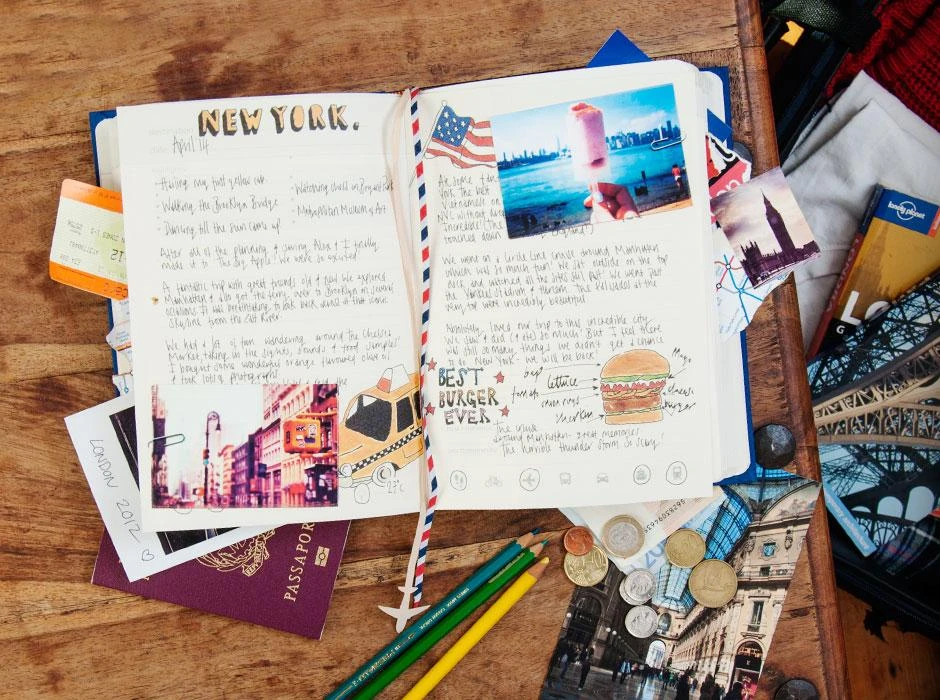 NEW YORK.
April 14
- Hailing my first yellow cab
- Walking the Brooklyn Bridge
- Dancing till the sun came up
- Metropolitan Museum of Art
After all of the planning & saving Alex & I finally
made it to 'The Big Apple'. We were so excited
A fantastic trip with great friends old & new. We explored
Manhattan & also got the ferry over to Brooklyn on several
occasions. It was breathtaking to look back at that iconic
skyline from the East River.
We had a lot of fun wandering around the Chelsea
Market, taking in the sights, sounds & food samples!
I bought some wonderful orange flavoured olive oil
& took lots of photographs
23°C
York. The best
NYC without
We went on a Circle Line cruise around Manhattan
which was so much fun! We sat outside on the top
deck and watched all the sites roll past. We went past
the Yankees stadium & The Palisades at the
very top were incredibly beautiful
Absolutely loved my trip to this incredible city.
We saw & did (& ate) so much! But I feel there
was still so many things we didn't get a chance
to do. New York - we will be back!
BEST
BURGER
EVER
lettuce
Mayo
cheese
burger
The cruise
around Manhattan - great memories
The horrible thunder storm so scary!
LONDON 2012
PASSAPOR
lonely planet